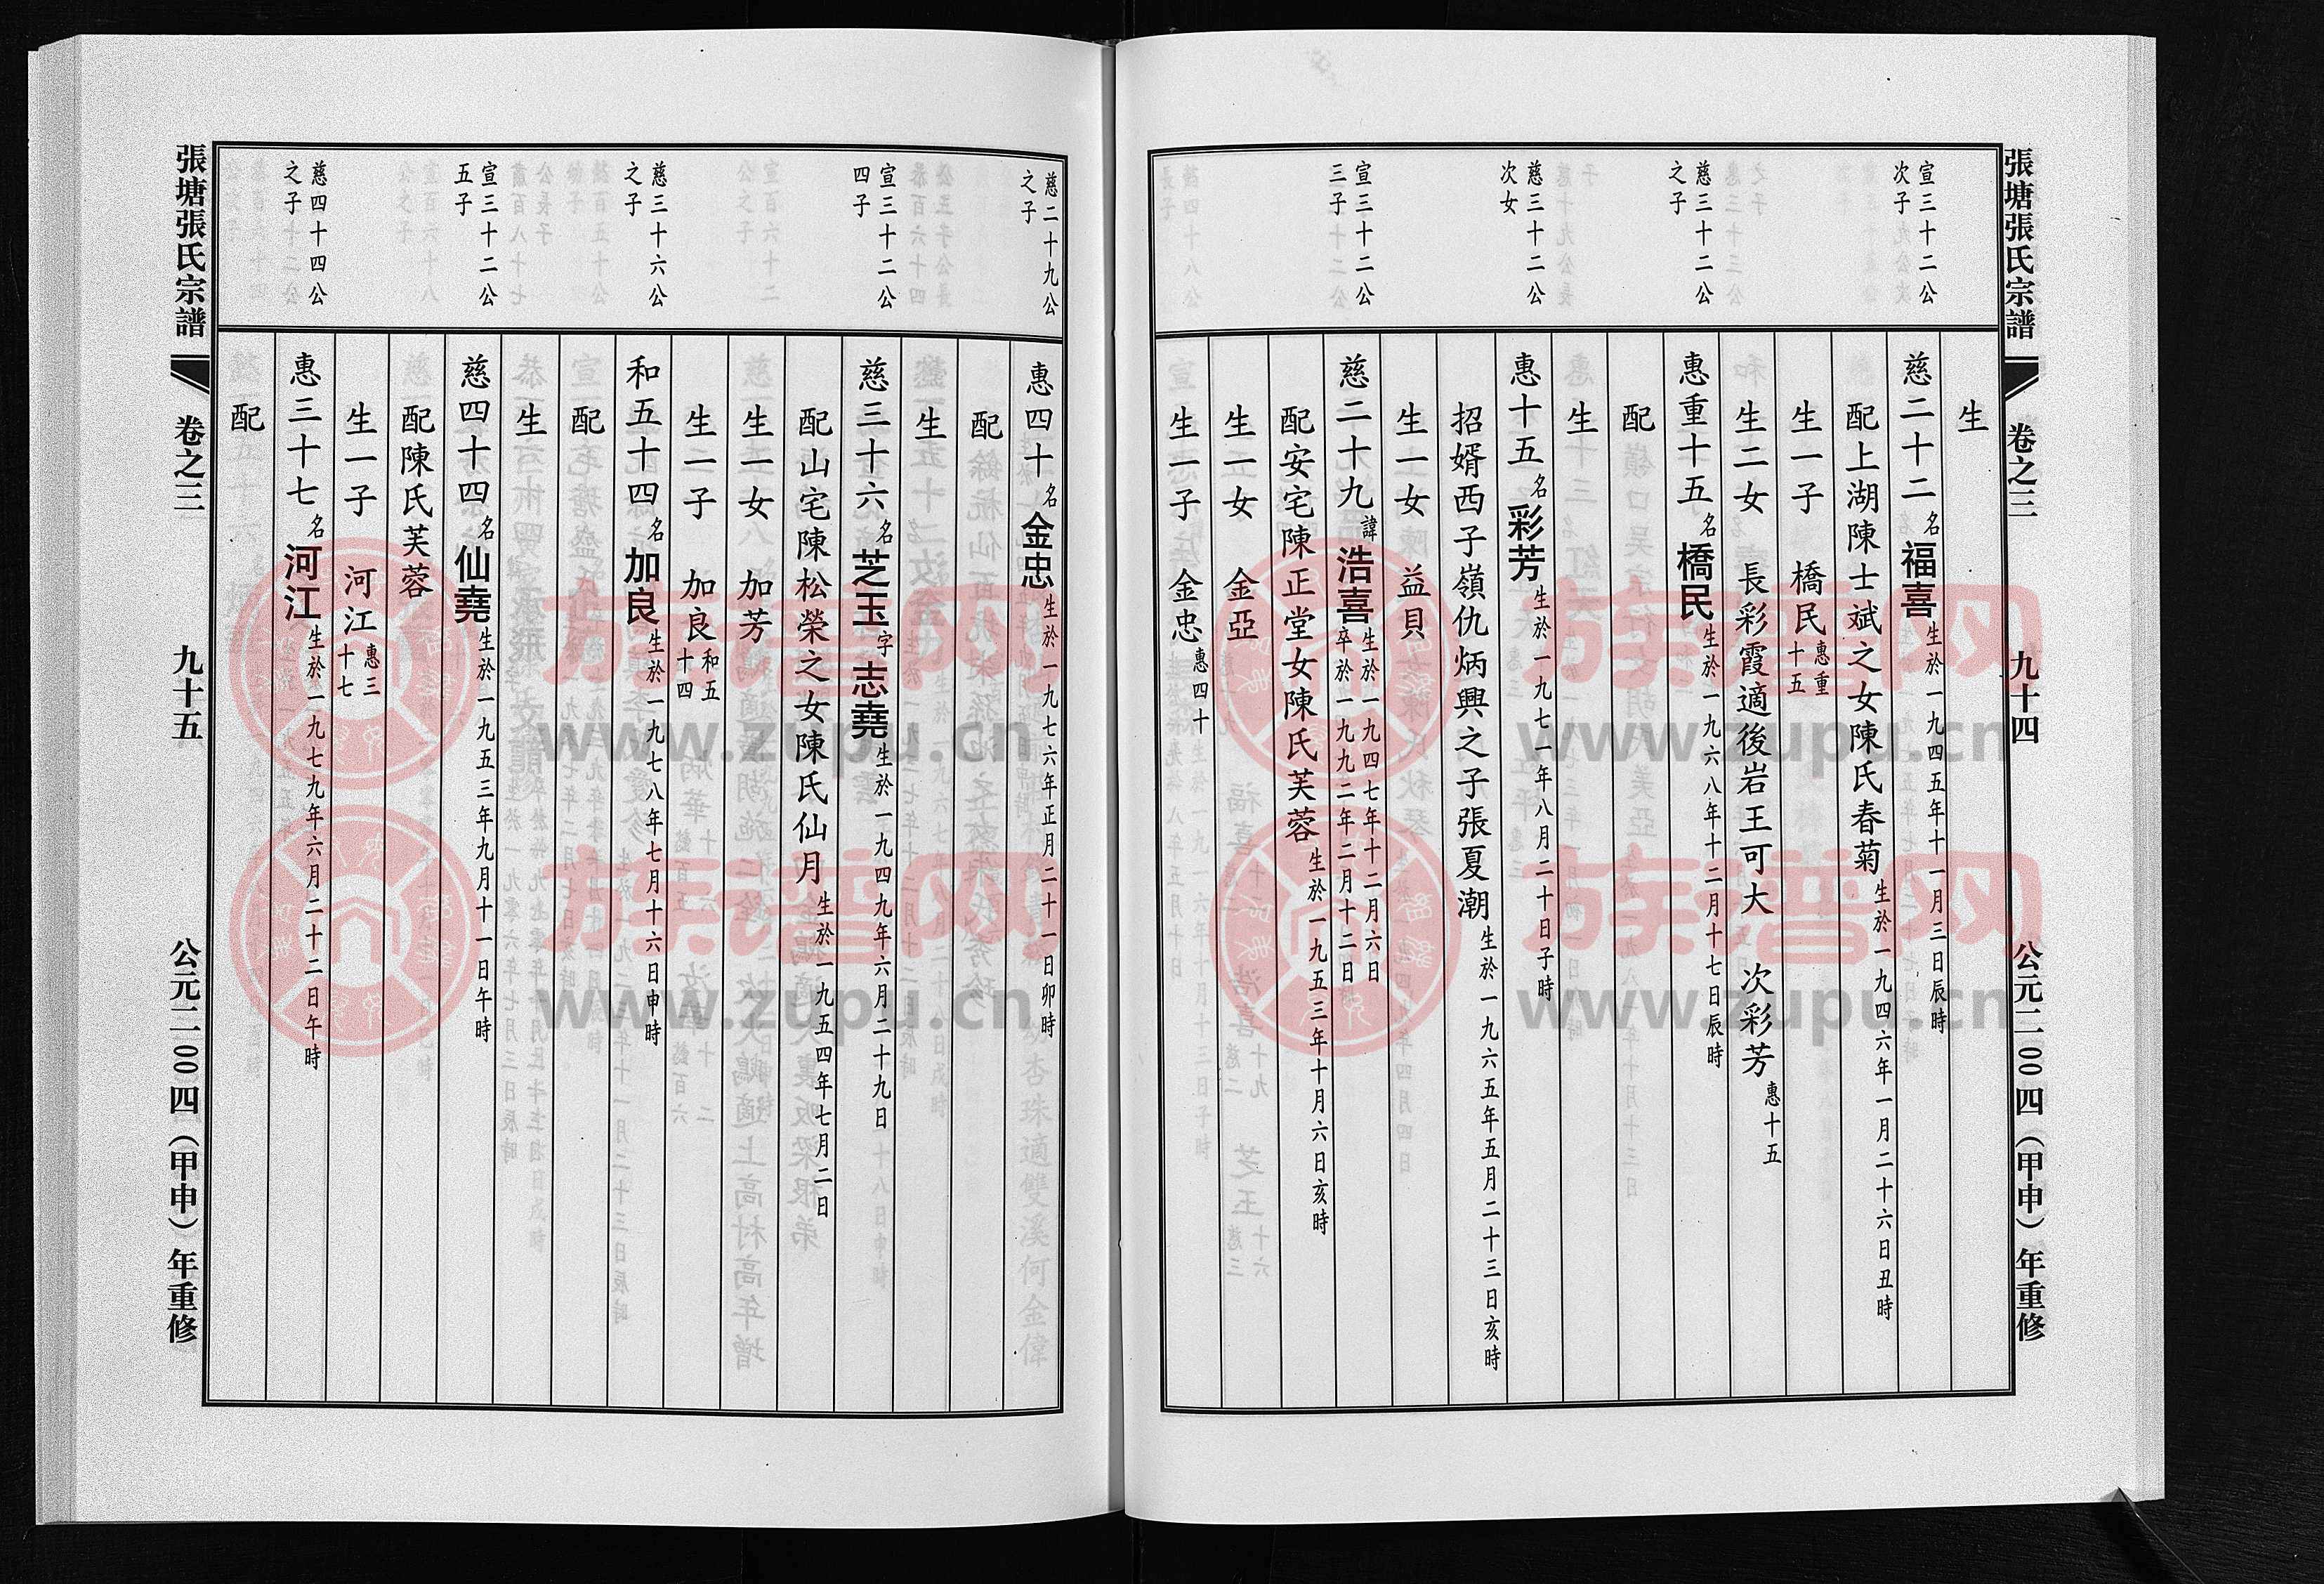 張塘張氏宗譜 卷之三 九十四 公元二00四（甲申）年重修
生
宣三十二公
次子
慈二十二 名福喜 生於一九四五年十一月三日辰時
配上湖陳士斌之女陳氏春菊 生於一九四六年一月二十六日丑時
生一子 橋民 惠重十五
生二女 長彩霞適後岩王可大 次彩芳 惠十五
慈三十二公
之子
惠重十五 名橋民 生於一九六八年十二月十七日辰時
配
生
慈三十二公
次女
惠十五 名彩芳 生於一九七一年八月二十日子時
招婿西子嶺仇炳興之子張夏潮 生於一九六五年五月二十三日亥時
生一女 益貝
宣三十二公
三子
慈二十九 諱浩喜 生於一九四七年十二月六日
卒於一九九二年二月十二日
配安宅陳正堂女陳氏芙蓉 生於一九五三年十月六日亥時
生一女 金亞
生一子 金忠 惠四十
慈二十九公
之子
惠四十 名金忠 生於一九七六年正月二十一日卯時
配
生
宣三十二公
四子
慈三十六 名芝玉 字志堯 生於一九四九年六月二十九日
配山宅陳松榮之女陳氏仙月 生於一九五四年七月二日
生一女 加芳
生一子 加良 和五十四
慈三十六公
之子
和五十四 名加良 生於一九七八年七月十六日申時
配
生
宣三十二公
五子
慈四十四 名仙堯 生於一九五三年九月十一日午時
配陳氏芙蓉
生一子 河江 惠三十七
慈四十四公
之子
惠三十七 名河江 生於一九七九年六月二十二日午時
配
張塘張氏宗譜 卷之三 九十五 公元二00四（甲申）年重修
族譜网
www.zupu.cn
族譜网
www.zupu.cn
族譜网
www.zupu.cn
族譜网
www.zupu.cn